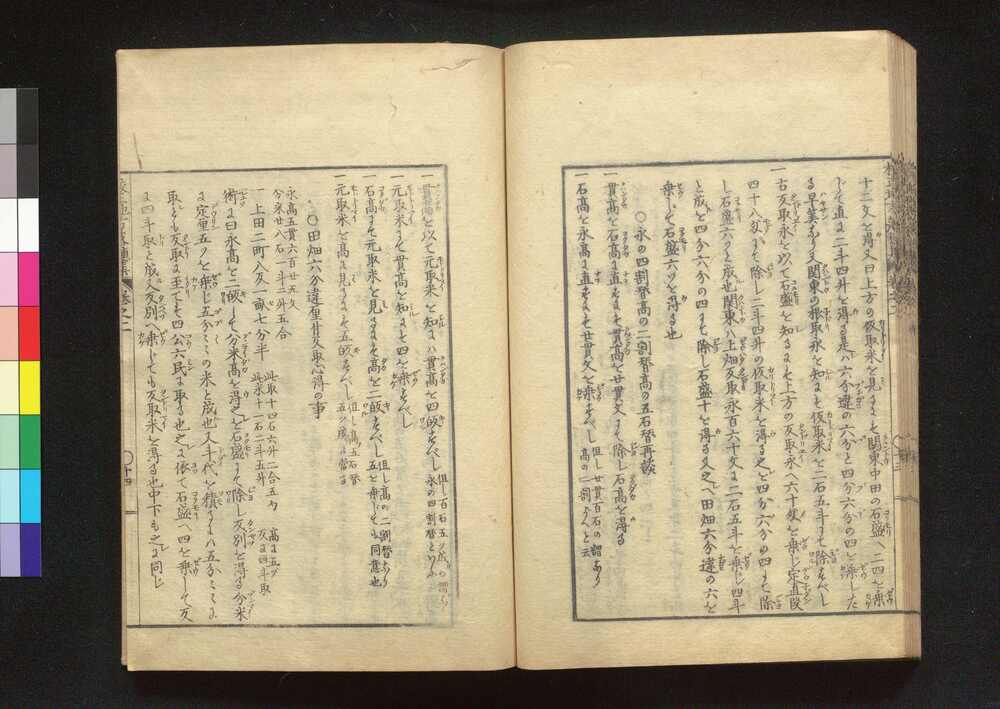 十二文を得る又曰上方の仮取米を見るにも関東中田の石盛へ二四を乗
じて直に二斗四升を得る是ハ六分違の六分と四分六分の四を乗した
る早業なり又関東の根取永を知るにも仮取米を二石五斗にて除すべし
一古反取永を以て石盛を知るにも上方の反取永六十文を乗じ定直段
四十八匁にて除し二斗四升の仮取米を得る之を四分六分の四にて除
し石盛六ツと成也関東ハ上畑反取永百六十文に二石五斗を乗し四斗
と成を四分六分の四にて除し石盛十を得る又之へ田畑六分違の六を
乗して石盛六ツを得る也
○永の四割替高の二割替高の五石替再談
一貫高を石高に直すにも貫高を廿貫文にて除し石高を得る 但し廿貫百石の割あり
一石高を永高に直すにも廿貫文を乗すべし 高の二割
一貫高を以て元取米を知るハ貫高を四帰すべし 但し百石五ツ成の割ら 永の四割替といふ
一元取米にて貫高を知るにも四を乗すべし
一石高にて元取米を見るにも高を二帰すべし五を乗しても同意也 但し高の二割替あり
一元取米を高に見るにも五帰すべし 但し高五石替 五ツ成に当る
○田畑六分違厘并反取心得の事
永高五貫六百廿五文
分米廿八石一斗二升五合
一上田二町八反一畝七分半 此取十一石六升二合五勺 高に五ツ
此永十一石二斗五升 反に四斗取
術に曰永高を二帰して分米高を得之を石盛にて除し反別を得る分米
に定厘五ツを乗じ五分ミミの米と成也又斗代を積るにハ五分ミミに
取るも反取に至ても四公六民に取る也之に依て石盛へ四を乗して反
に四斗取と成又反別へ乗じても反取米を得る也中下も之に同じ
十四